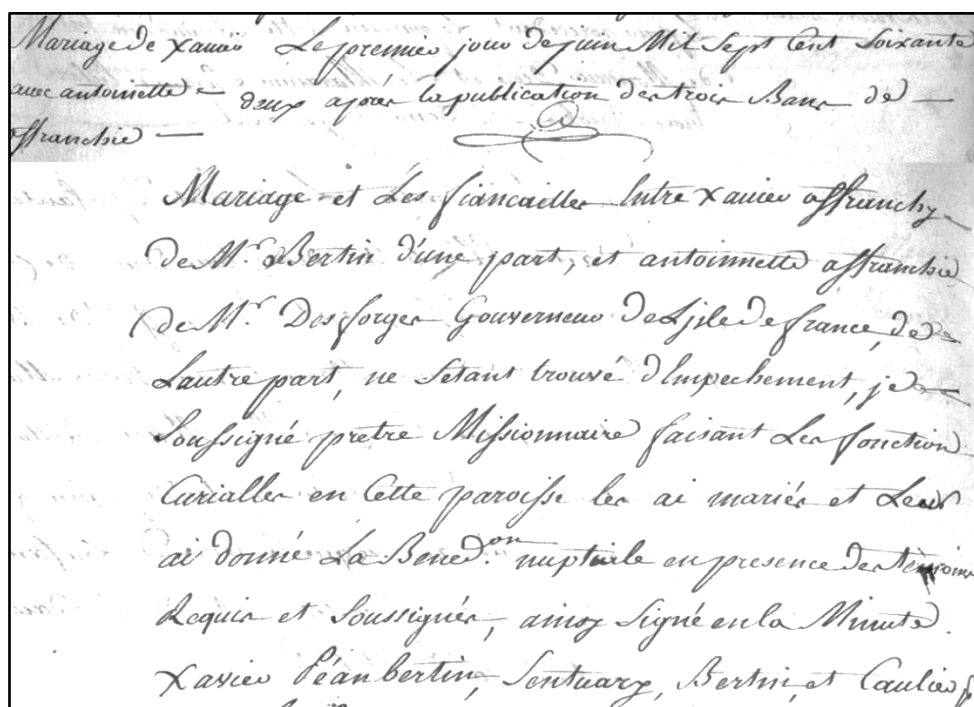 Mariage de xavier
avec antoinette
affranchie
Le premier jour de juin Mil Sept Cent Soixante
deux après la publication des trois Bans de
Mariage et Les fiancailles Entre xavier affranchy
de Mr. Bertin d'une part, et antoinnette affranchie
de Mr. Desforges Gouverneur de L'jsle de france, de
Lautre part, ne Setant trouvé d'Empechement, je
Soussigné pretre Missionnaire faisant Les fonction
Curialles en Cette paroisse les ai mariés et Leur
ai donné La Bened.on nuptiale en presence des temoins
Requis et Soussignés, ainsy Signé en la Minute.
Xavier Péanbertin, Sentuary, Bertin, et Caulier